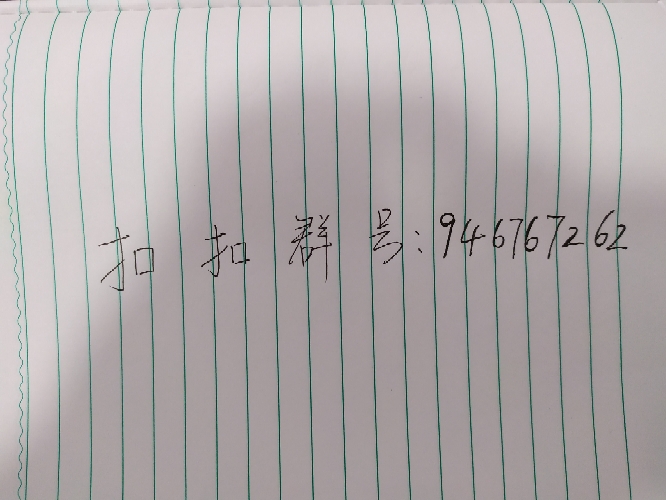 扣扣群号:946767262